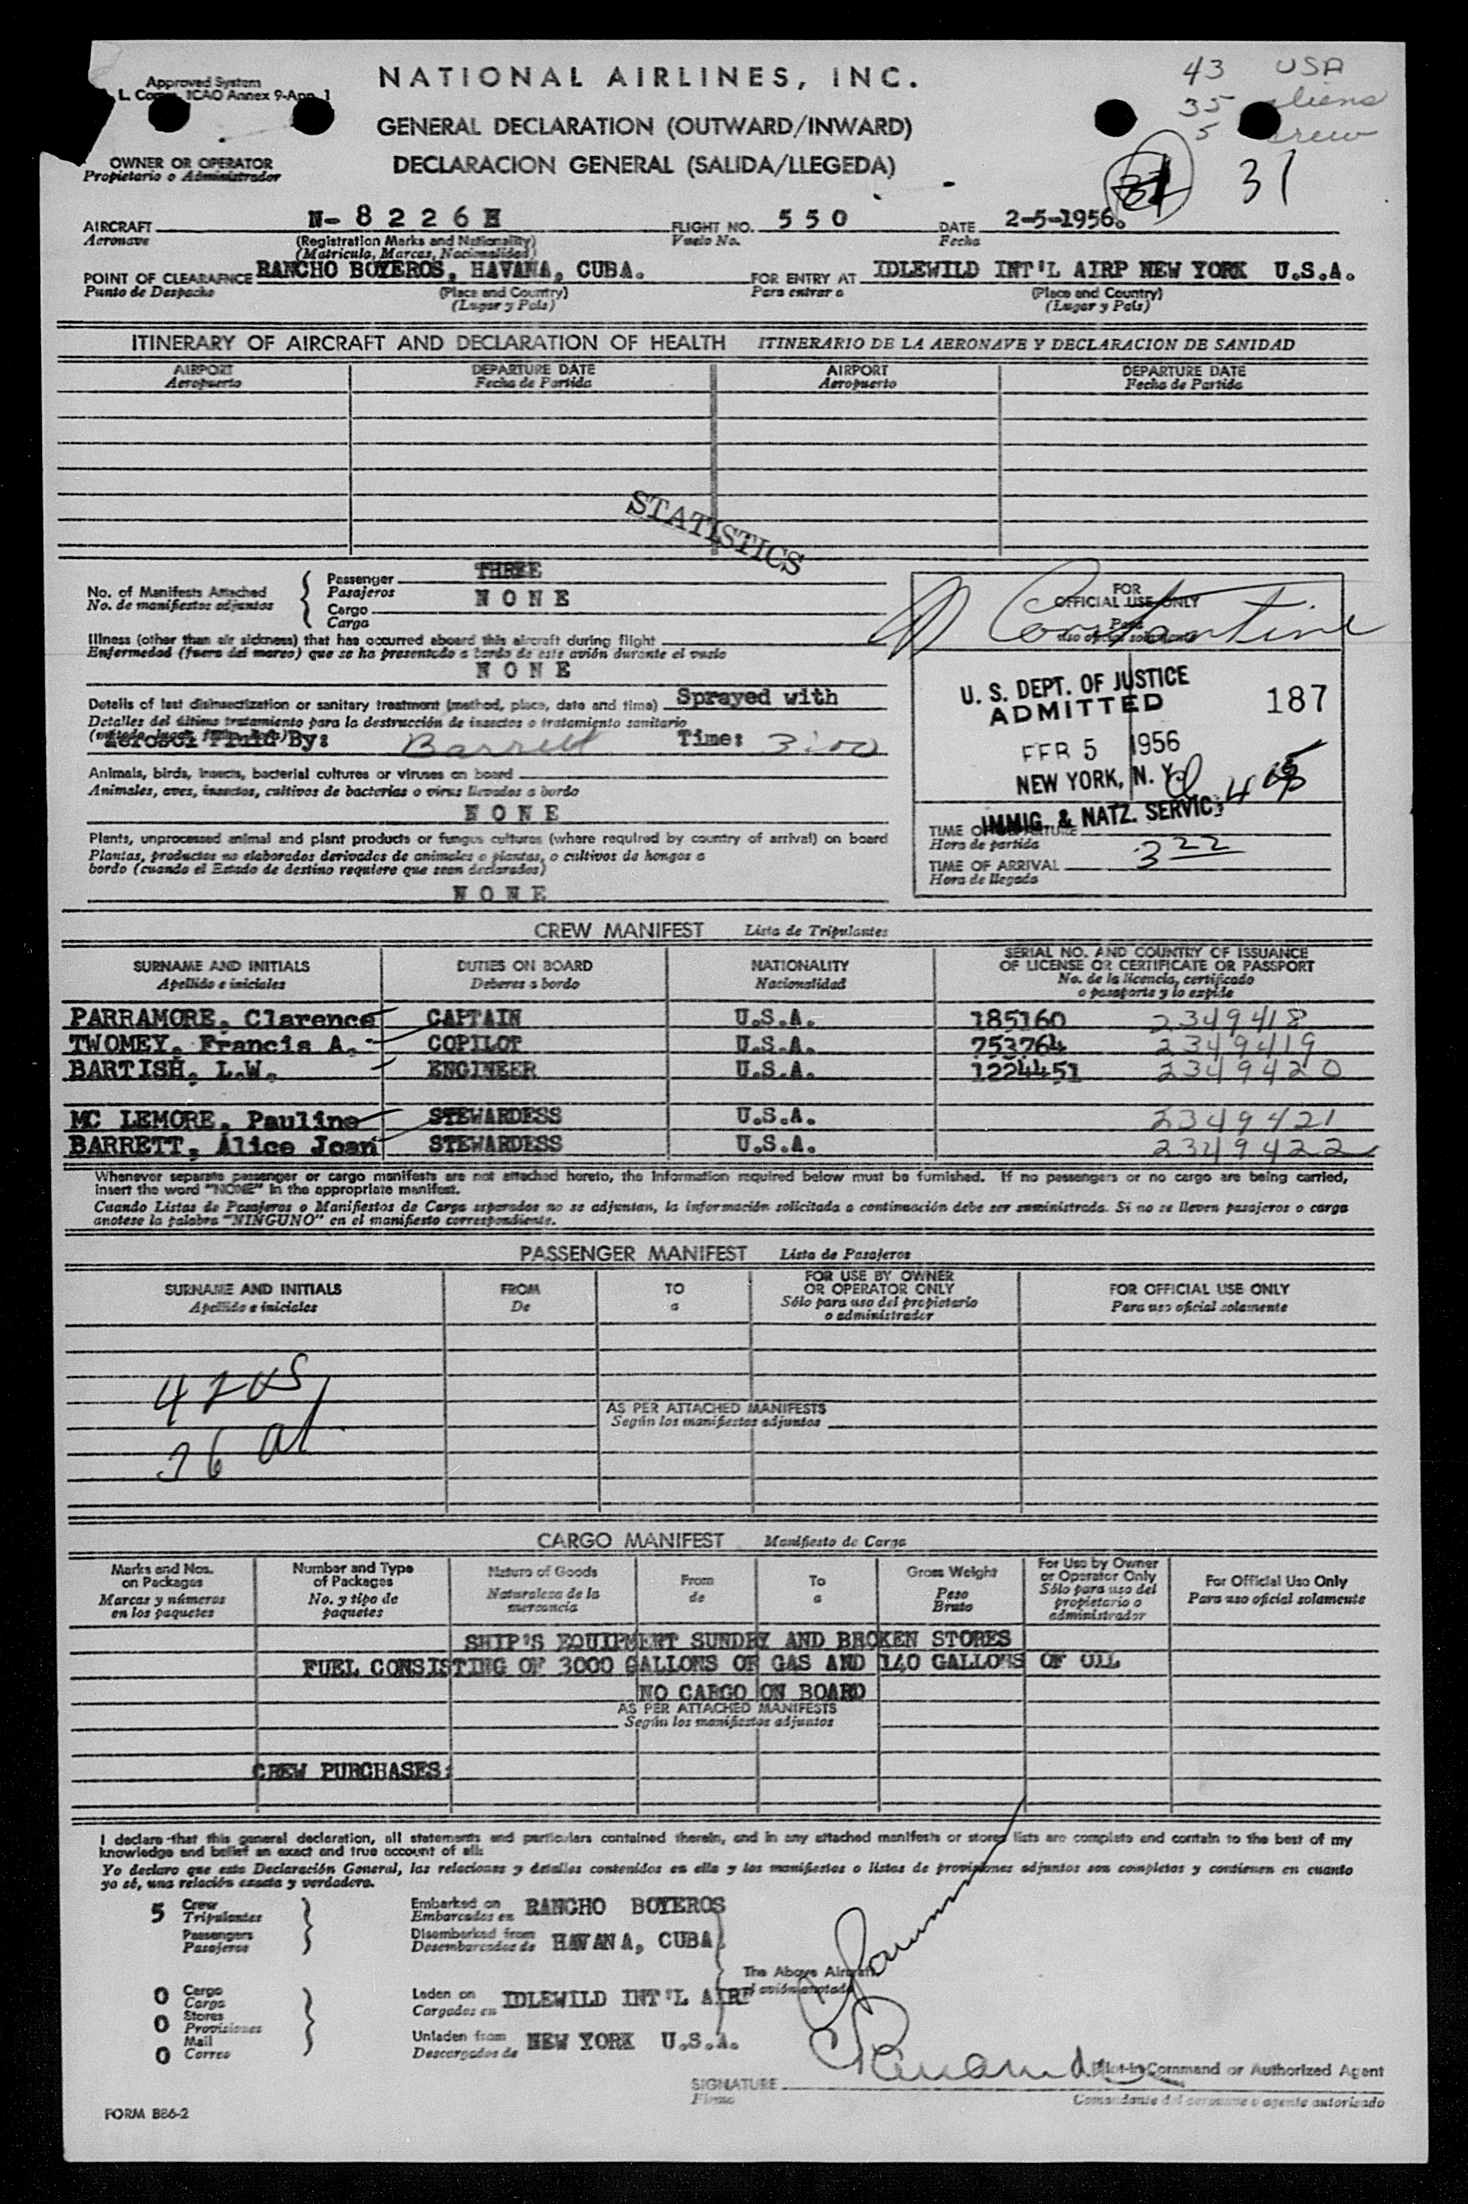 NATIONAL AIRLINES, INC.
43 USA
35 aliens
5 crew
Approved System
L. Comm. ICAO Annex 9-App. 1
GENERAL DECLARATION (OUTWARD/INWARD)
DECLARACION GENERAL (SALIDA/LLEGEDA)
31
OWNER OR OPERATOR
Propietario o Administrador
AIRCRAFT N-8226H FLIGHT NO. 550 DATE 2-5-1956.
Aeronave (Registration Marks and Nationality) Vuelo No. Fecha
(Matricula, Marcas, Nacionalidad)
POINT OF CLEARAFNCE RANCHO BOYEROS, HAVANA, CUBA. FOR ENTRY AT IDLEWILD INT'L AIRP NEW YORK U.S.A.
Punto de Despacho (Place and Country) Para entrar a (Place and Country)
(Lugar y Pais) (Lugar y Pais)
ITINERARY OF AIRCRAFT AND DECLARATION OF HEALTH ITINERARIO DE LA AERONAVE Y DECLARACION DE SANIDAD
AIRPORT DEPARTURE DATE AIRPORT DEPARTURE DATE
Aeropuerto Fecha de Partida Aeropuerto Fecha de Partida
STATISTICS
No. of Manifests Attached Passenger THREE
No. de manifiestos adjuntos Pasajeros
Cargo NONE
Carga
Illness (other than air sickness) that has occurred aboard this aircraft during flight
Enfermedad (fuera del mareo) que se ha presentado a bordo de este avión durante el vuelo
NONE
Details of last disinsectization or sanitary treatment (method, place, date and time) Sprayed with
Detalles del último tratamiento para la destrucción de insectos o tratamiento sanitario
(método, lugar, fecha, hora)
aerosol Fluid By: Barrett Time: 3:00
Animals, birds, insects, bacterial cultures or viruses on board
Animales, aves, insectos, cultivos de bacterias o virus llevados a bordo
NONE
Plants, unprocessed animal and plant products or fungus cultures (where required by country of arrival) on board
Plantas, productos no elaborados derivados de animales o plantas, o cultivos de hongos a
bordo (cuando el Estado de destino requiere que sean declarados)
NONE
FOR
OFFICIAL USE ONLY
Para
uso oficial solamente
Constantine
U. S. DEPT. OF JUSTICE
ADMITTED 187
FEB 5 1956
NEW YORK, N. Y.
IMMIG. & NATZ. SERVICE
TIME OF DEPARTURE
Hora de partida
TIME OF ARRIVAL 3 22
Hora de llegada
CREW MANIFEST Lista de Tripulantes
SURNAME AND INITIALS DUTIES ON BOARD NATIONALITY SERIAL NO. AND COUNTRY OF ISSUANCE
OF LICENSE OR CERTIFICATE OR PASSPORT
Apellido e iniciales Deberes a bordo Nacionalidad No. de la licencia, certificado
o pasaporte y lo expide
PARRAMORE, Clarence CAPTAIN U.S.A. 185160 2349418
TWOMEY, Francis A. COPILOT U.S.A. 753764 2349419
BARTISH, L.W. ENGINEER U.S.A. 1224451 2349420
MC LEMORE, Pauline STEWARDESS U.S.A. 2349421
BARRETT, Alice Joan STEWARDESS U.S.A. 2349422
Whenever separate passenger or cargo manifests are not attached hereto, the information required below must be furnished. If no passengers or no cargo are being carried,
insert the word "NONE" in the appropriate manifest.
Cuando Listas de Pasajeros o Manifiestos de Carga separados no se adjuntan, la información solicitada a continuación debe ser suministrada. Si no se lleven pasajeros o carga
anotese la palabra "NINGUNO" en el manifiesto correspondiente.
PASSENGER MANIFEST Lista de Pasajeros
SURNAME AND INITIALS FROM TO FOR USE BY OWNER
OR OPERATOR ONLY FOR OFFICIAL USE ONLY
Apellido e iniciales De a Sólo para uso del propietario
o administrador Para uso oficial solamente
42 US
36 al
AS PER ATTACHED MANIFESTS
Según los manifiestos adjuntos
CARGO MANIFEST Manifiesto de Carga
Marks and Nos.
on Packages
Marcas y números
en los paquetes
Number and Type
of Packages
No. y tipo de
paquetes
Nature of Goods
Naturaleza de la
mercancia
From
de
To
a
Gross Weight
Peso
Bruto
For Use by Owner
or Operator Only
Sólo para uso del
propietario o
administrador
For Official Use Only
Para uso oficial solamente
SHIP'S EQUIPMENT SUNDRY AND BROKEN STORES
FUEL CONSISTING OF 3000 GALLONS OF GAS AND 140 GALLONS OF OIL
NO CARGO ON BOARD
AS PER ATTACHED MANIFESTS
Según los manifiestos adjuntos
CREW PURCHASES:
I declare that this general declaration, all statements and particulars contained therein, and in any attached manifests or stores lists are complete and contain to the best of my
knowledge and belief an exact and true account of all:
Yo declaro que esta Declaración General, las relaciones y detalles contenidos en ella y los manifiestos o listas de provisiones adjuntos son completos y contienen en cuanto
yo sé, una relación exacta y verdadera.
5 Crew
Tripulantes
Passengers
Pasajeros
Embarked on RANCHO BOYEROS
Embarcados en
Disembarked from HAVANA, CUBA
Desembarcados de
The Above Aircraft
0 Cargo
Carga
0 Stores
Provisiones
0 Mail
Correo
Laden on IDLEWILD INT'L AIRP
Cargados en
Unladen from NEW YORK U.S.A.
Descargados de
Pilot-in-Command or Authorized Agent
SIGNATURE
Firma
Comandante del aeronave o agente autorizado
FORM B86-2